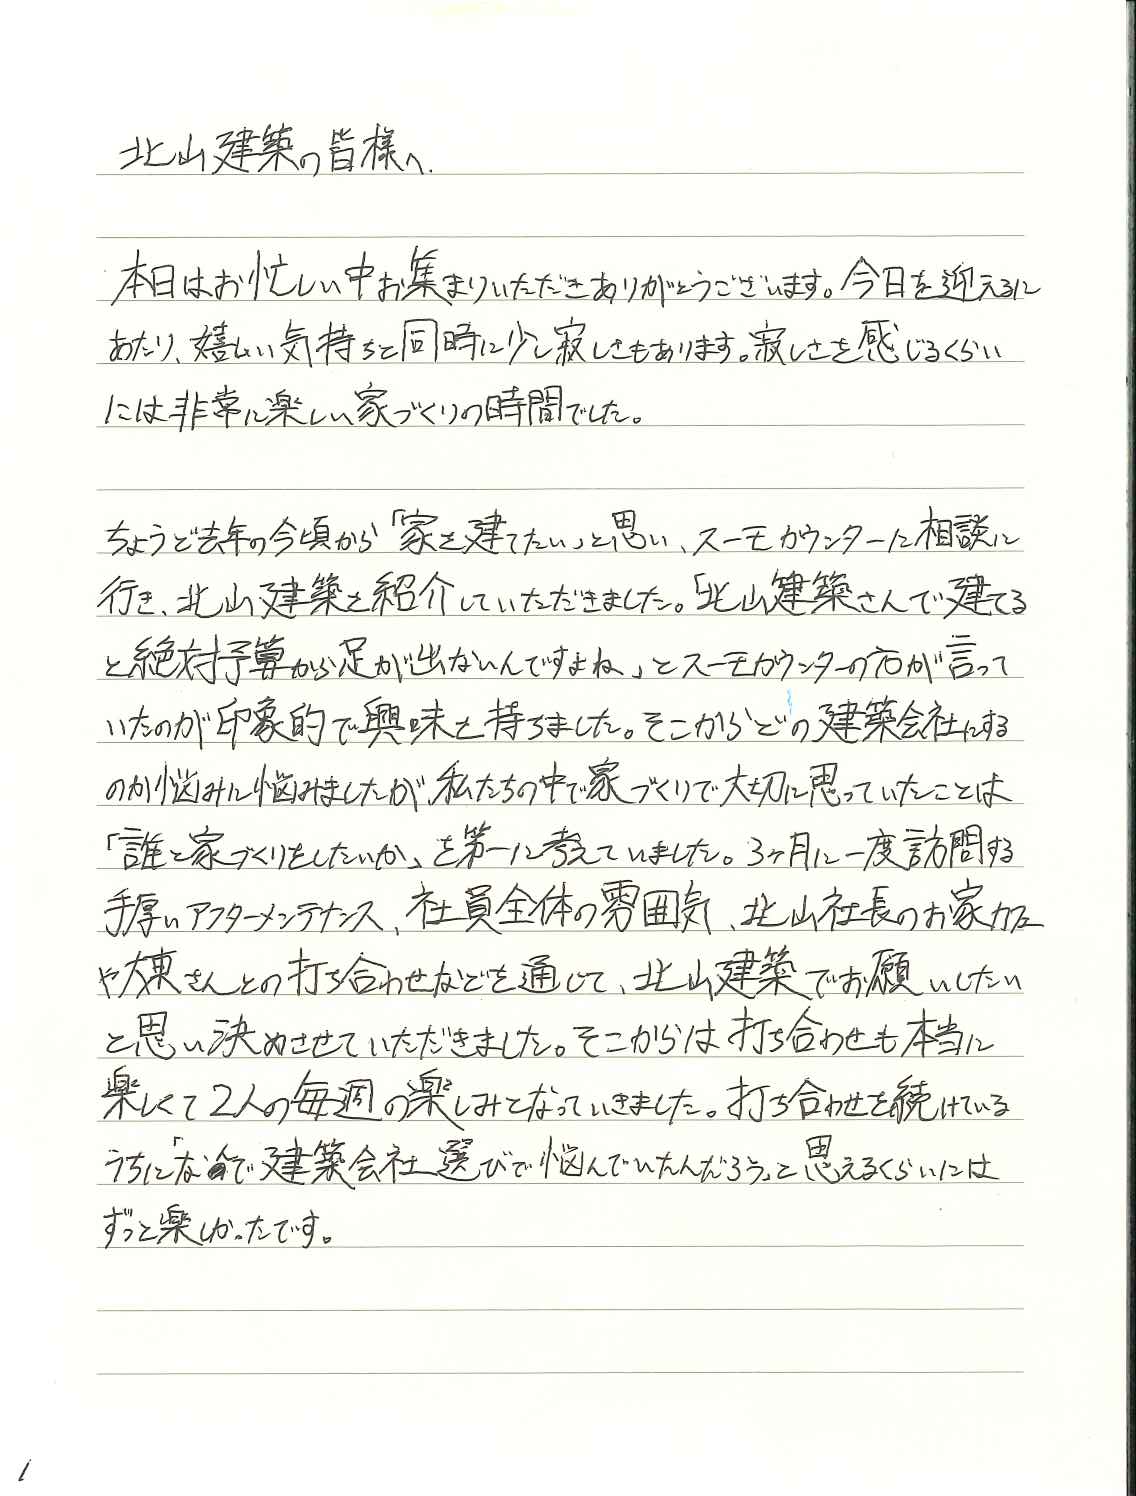 北山建築の皆様へ.
本日はお忙しい中お集まりいただきありがとうございます。今日を迎えるに
あたり、嬉しい気持ちと同時に少し寂しさもあります。寂しさを感じるくらい
には非常に楽しい家づくりの時間でした。
ちょうど去年の今頃から「家を建てたい」と思い、スーモカウンターに相談に
行き、北山建築を紹介していただきました。「北山建築さんで建てる
と絶対予算から足が出ないんですよね」とスーモカウンターの方が言って
いたのが印象的で興味を持ちました。そこからどの建築会社にする
のか悩みに悩みましたが、私たちの中で家づくりで大切に思っていたことは
「誰と家づくりをしたいか」を第一に考えていました。3ヶ月に一度訪問する
手厚いアフターメンテナンス、社員全体の雰囲気、北山社長のお家カフェ
や棟さんとの打ち合わせなどを通じて、北山建築でお願いしたい
と思い決めさせていただきました。そこからは打ち合わせも本当に
楽しくて2人の毎週の楽しみとなっていきました。打ち合わせを続けている
うちに「なんで建築会社選びで悩んでいたんだろう」と思えるくらいには
ずっと楽しかったです。
1